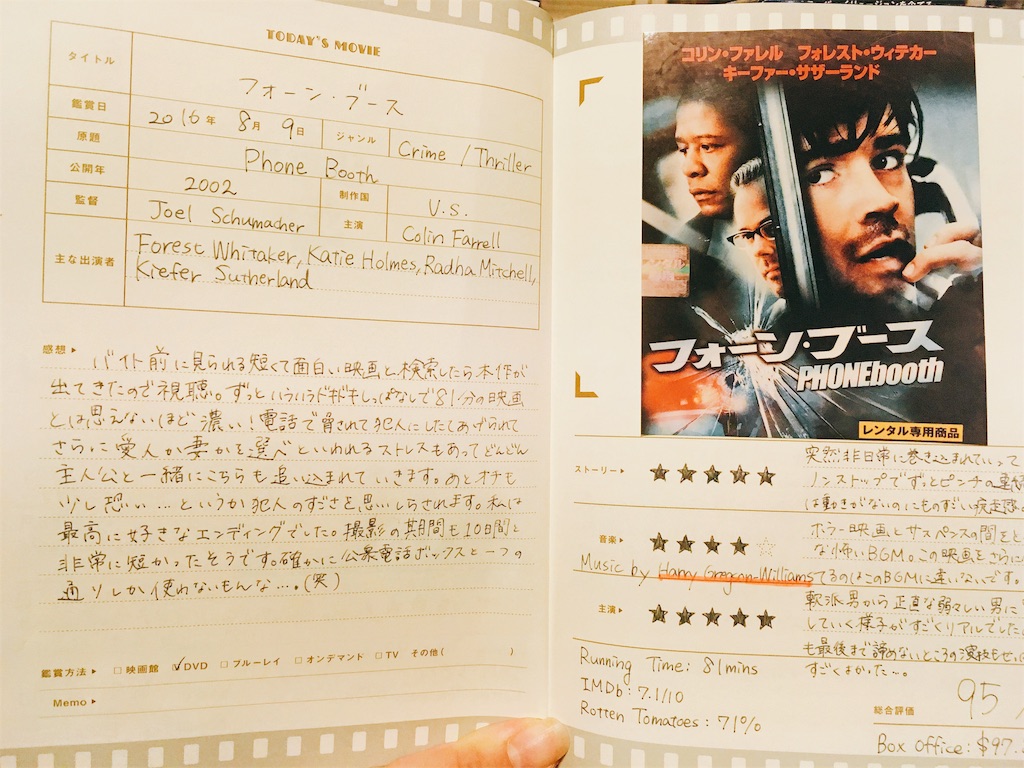 TODAY'S MOVIE
タイトル
フォーン・ブース
鑑賞日 2016年 8月 9日 ジャンル Crime / Thriller
原題 Phone Booth
公開年 2002 制作国 U.S.
監督 Joel Schumacher 主演 Colin Farrell
主な出演者 Forest Whitaker, Katie Holmes, Radha Mitchell,
Kiefer Sutherland
感想 バイト前に見られる短くて面白い映画と検索したら本作が
出てきたので視聴。ずっといういうドキドキしっぱなしで81分の映画
とは思えないほど濃い！電話で脅されて犯人にしたてあげられて
さらに愛人か妻かを選べといわれるストレスもあってどんどん
主人公と一緒にこちらも追い込まれていきます。あとオチも
少し恐い…というか犯人のすごさを思いしらされます。私は
最高に好きなエンディングでした。撮影の期間も10日間と
非常に短かったそうです。確かに公衆電話ボックスと一つの
通りしか使わないもんな…。(笑)
鑑賞方法 映画館 DVD ブルーレイ オンデマンド TV その他( )
Memo
コリン・ファレル フォレスト・ウィテカー
キーファー・サザーランド
フォーン・ブース
PHONEbooth
レンタル専用商品
ストーリー ★★★★★
突然非日常に巻き込まれていって
ノンストップでずっとピンチの
は動きがないのにものすごい疾走感
音楽 ★★★★☆
Music by Harry Gregson-Williams
ホラー映画とサスペンスの間をと
な怖いBGM。この映画をさらに
てるのはこのBGMに違いないです。
主演 ★★★★★
軟派男から正直な弱々しい男に
していく様子がすごくリアルでした。
も最後まで諦めないところの演技も
すごくよかった〜。
Running Time: 81mins
IMDb: 7.1/10
Rotten Tomatoes: 71%
総合評価 95 /
Box Office: $97.